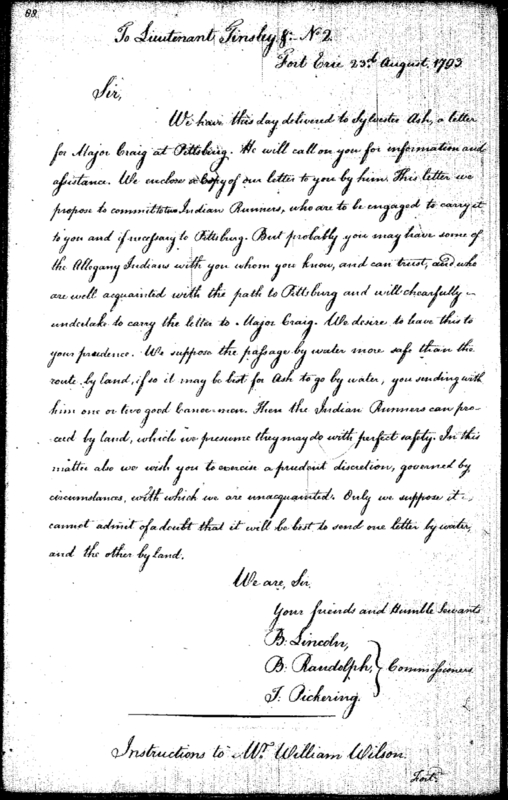 88
To Lieutenant Tinsley &c. No 2.
Fort Erie 23d. August. 1793
Sir,
We have this day delivered to Sylvester Ash, a letter
for Major Craig at Pittsburg. He will call on you for information and
assistance. We enclose a Copy of our letter to you by him. This letter we
propose to commit to two Indian Runners, who are to be engaged to carry it
to you and if necessary to Pittsburg. But probably you may have some of
the Allegany Indians with you whom you know, and can trust, and who
are well acquainted with the path to Pittsburg and will chearfully
undertake to carry the letter to Major Craig. We desire to leave this to
your prudence. We suppose the passage by water more safe than the
route by land, if so it may be best for Ash to go by water, you sending with
him one or two good Canoe-men. Then the Indian Runners can pro-
ceed by land, which we presume they may do with perfect safety. In this
matter also we wish you to exercise a prudent discretion, governed by
circumstances, with which we are unacquainted. Only we suppose it
cannot admit of a doubt that it will be best to send one letter by water,
and the other by land.
We are, Sir
Your friends and Humble Servants
B. Lincoln,
B. Randolph, } Commissioners
T. Pickering.
Instructions to Mr. William Wilson.
Fort